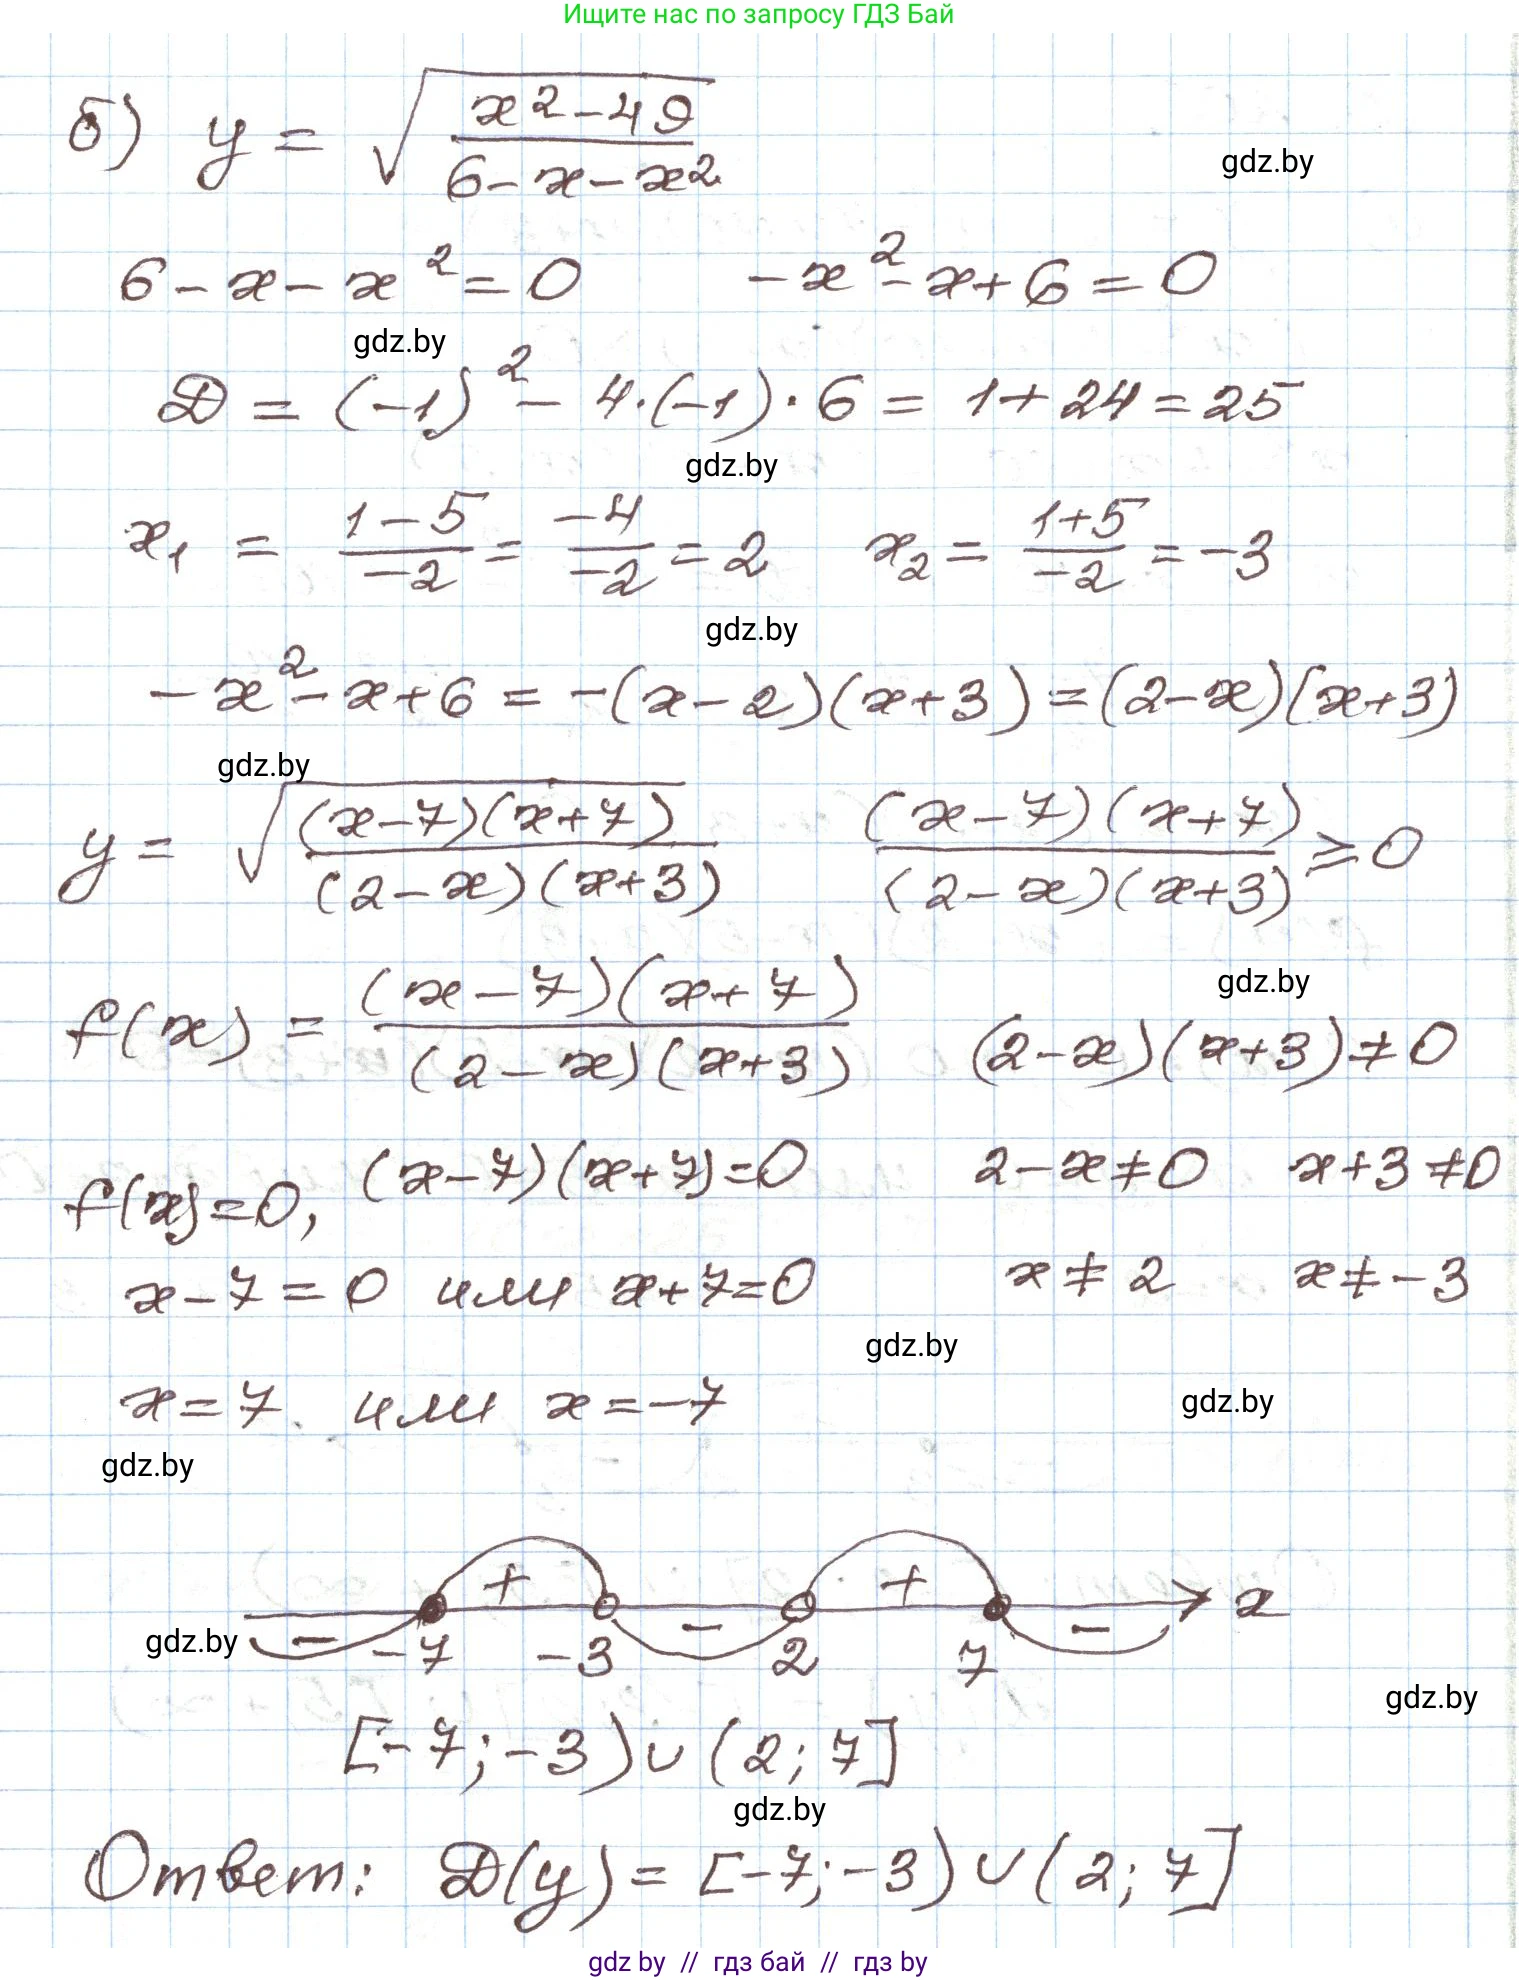 Ищите нас по запросу ГДЗ Бай
б) y = √((x² - 49)/(6 - x - x²))
gdz.by
6 - x - x² = 0    -x² - x + 6 = 0
gdz.by
D = (-1)² - 4·(-1)·6 = 1 + 24 = 25
gdz.by
x₁ = (1 - 5)/(-2) = (-4)/(-2) = 2    x₂ = (1 + 5)/(-2) = -3
gdz.by
-x² - x + 6 = -(x - 2)(x + 3) = (2 - x)(x + 3)
gdz.by
y = √(((x - 7)(x + 7))/((2 - x)(x + 3)))    ((x - 7)(x + 7))/((2 - x)(x + 3)) ⩾ 0
gdz.by
f(x) = ((x - 7)(x + 7))/((2 - x)(x + 3))    (2 - x)(x + 3) ≠ 0
f(x) = 0, (x - 7)(x + 7) = 0    2 - x ≠ 0    x + 3 ≠ 0
x - 7 = 0 или x + 7 = 0    x ≠ 2    x ≠ -3
gdz.by
x = 7 или x = -7
gdz.by
gdz.by
+ + x
gdz.by
- -7 -3 - 2 7 -
gdz.by
[-7; -3) ∪ (2; 7]
gdz.by
Ответ: D(y) = [-7; -3) ∪ (2; 7]
gdz by // гдз бай // гдз by